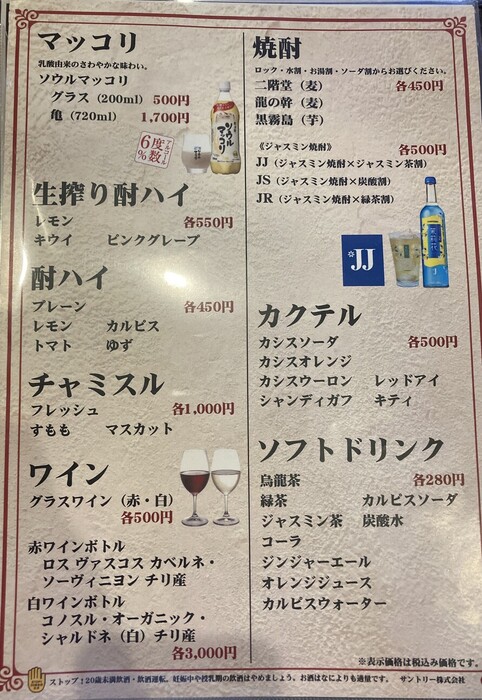 マッコリ
乳酸由来のさわやかな味わい。
ソウルマッコリ
グラス (200ml) 500円
亀 (720ml) 1,700円
アルコール
度数
6%
ソウル
マッコリ
生搾り酎ハイ
レモン 各550円
キウイ ピンクグレープ
酎ハイ
プレーン 各450円
レモン カルピス
トマト ゆず
チャミスル
フレッシュ 各1,000円
すもも マスカット
ワイン
グラスワイン (赤・白)
各500円
赤ワインボトル
ロス ヴァスコス カベルネ・
ソーヴィニヨン チリ産
白ワインボトル
コノスル・オーガニック・
シャルドネ (白) チリ産
各3,000円
焼酎
ロック・水割・お湯割・ソーダ割からお選びください。
二階堂 (麦) 各450円
龍の幹 (麦)
黒霧島 (芋)
《ジャスミン焼酎》 各500円
JJ (ジャスミン焼酎×ジャスミン茶割)
JS (ジャスミン焼酎×炭酸割)
JR (ジャスミン焼酎×緑茶割)
JJ
茉莉花
カクテル
カシスソーダ 各500円
カシスオレンジ
カシスウーロン レッドアイ
シャンディガフ キティ
ソフトドリンク
烏龍茶 各280円
緑茶 カルピスソーダ
ジャスミン茶 炭酸水
コーラ
ジンジャーエール
オレンジジュース
カルピスウォーター
※表示価格は税込み価格です。
ストップ!20歳未満飲酒・飲酒運転。妊娠中や授乳期の飲酒はやめましょう。お酒はなによりも適量です。 サントリー株式会社